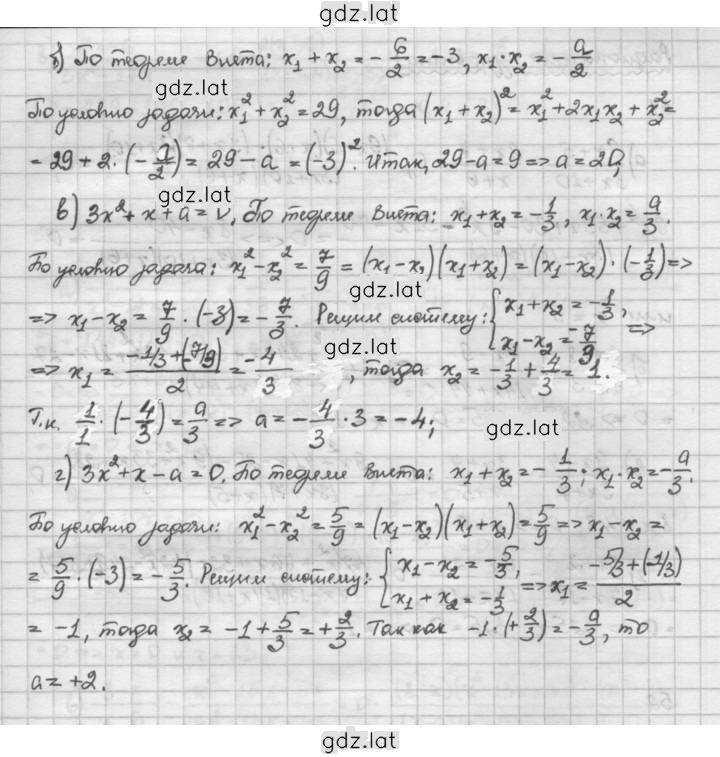 gdz.lat
б) По теореме Виета: x₁ + x₂ = -6/2 = -3, x₁·x₂ = -a/2
gdz.lat
По условию задачи: x₁² + x₂² = 29, тогда (x₁ + x₂)² = x₁² + 2x₁x₂ + x₂² =
= 29 + 2·(-a/2) = 29 - a = (-3)². Итак, 29 - a = 9 => a = 20;
gdz.lat
в) 3x² + x + a = 0. По теореме Виета: x₁ + x₂ = -1/3, x₁·x₂ = a/3.
По условию задачи: x₁² - x₂² = 7/9 = (x₁ - x₂)(x₁ + x₂) = (x₁ - x₂)·(-1/3) =>
gdz.lat
=> x₁ - x₂ = 7/9·(-3) = -7/3. Решим систему: {x₁ + x₂ = -1/3, x₁ - x₂ = -7/9 =>
gdz.lat
=> x₁ = (-1/3 + (-7/9))/2 = -4/3, тогда x₂ = -1/3 + 4/3 = 1.
Т.к. 1/1·(-4/3) = a/3 => a = -4/3·3 = -4;
gdz.lat
г) 3x² + x - a = 0. По теореме Виета: x₁ + x₂ = -1/3; x₁·x₂ = -a/3.
gdz.lat
По условию задачи: x₁² - x₂² = 5/9 = (x₁ - x₂)(x₁ + x₂) = 5/9 => x₁ - x₂ =
= 5/9·(-3) = -5/3. Решим систему: {x₁ - x₂ = -5/3, x₁ + x₂ = -1/3 => x₁ = (-5/3 + (-1/3))/2
gdz.lat
= -1, тогда x₂ = -1 + 5/3 = +2/3. Так как -1·(+2/3) = -a/3, то
a = +2.
gdz.lat